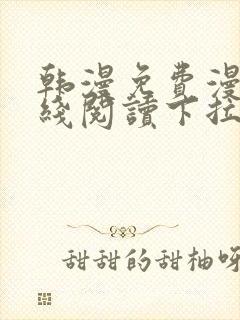 韩漫免費漫
綫閱讀下拉
甜甜的甜柚呀